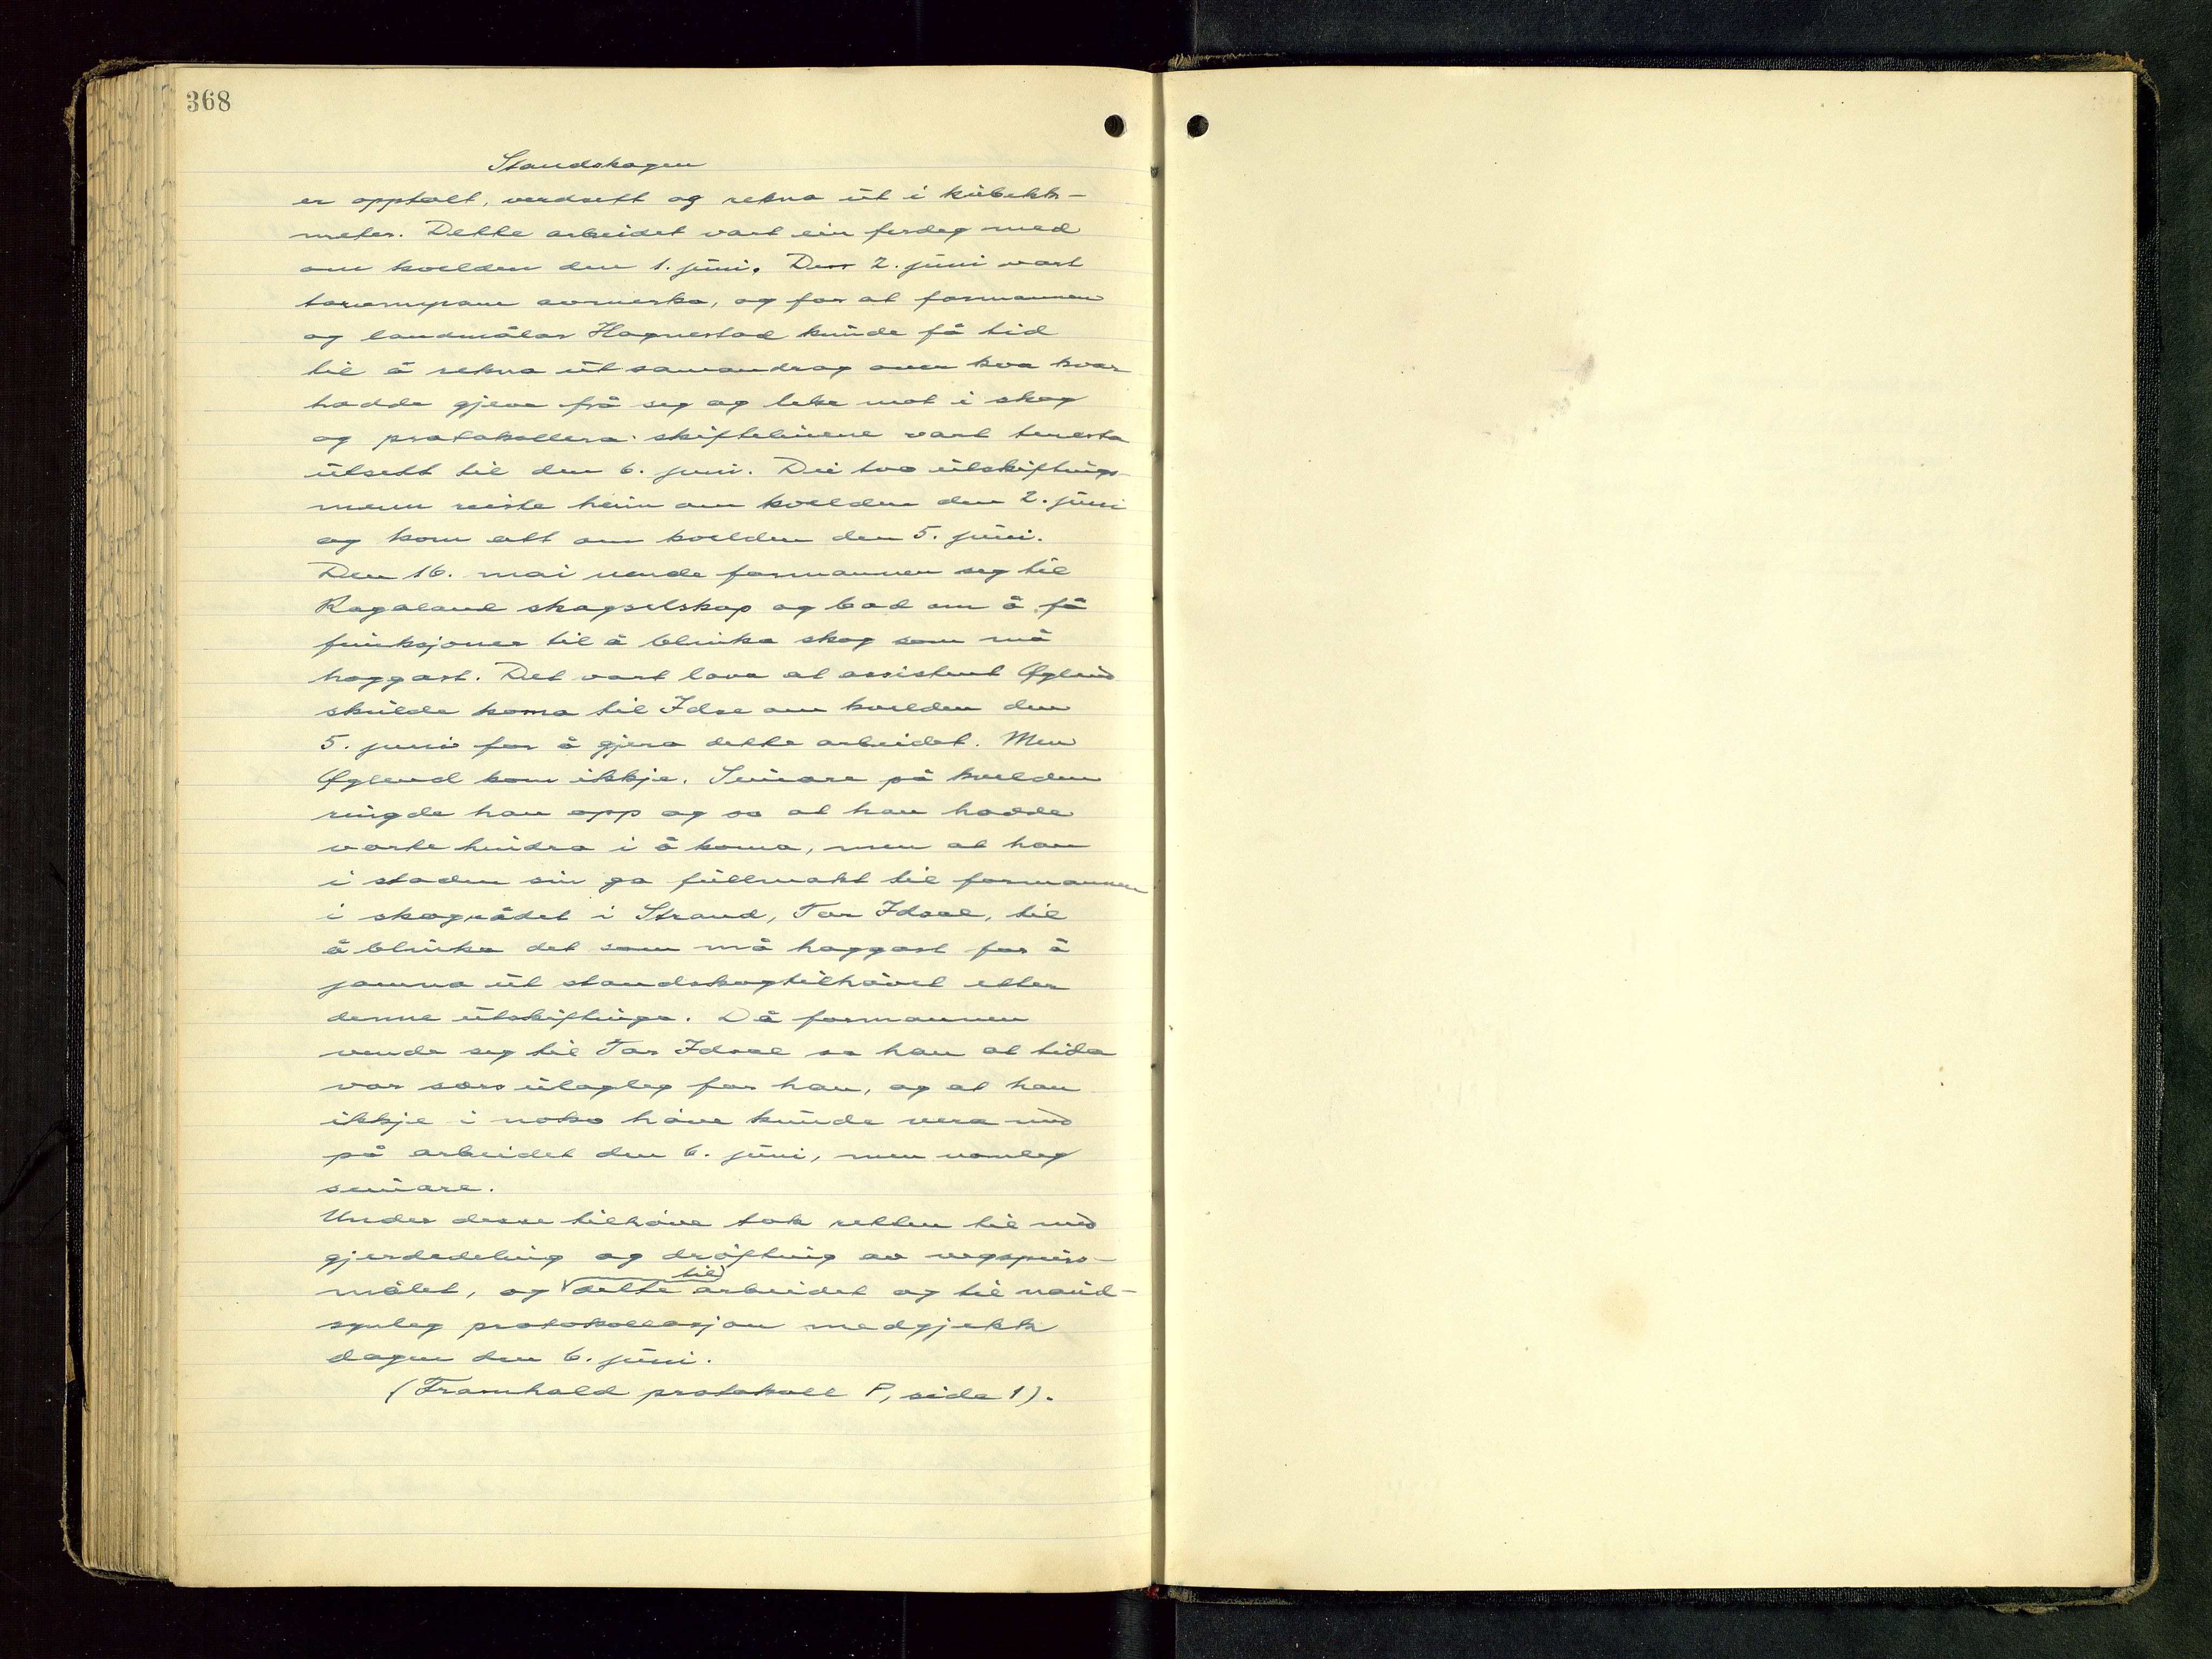 368
Standskogen
er opptalt, verdsett og rekna ut i kubikk-
meter. Dette arbeidet vart ein ferdeg med
om kvelden den 1. juni. Den 2. juni vart
torvmyrane avmerka, og for at formannen
og landmålar Hagnestad kunde få tid
til å rekna ut samandrag over kva kvar
hadde gjeve frå seg og teke mot i skog
og protokollera skiftelinene vart tenesta
utsett til den 6. juni. Dei two utskiftings-
menn reiste heim om kvelden den 2. juni
og kom att om kvelden den 5. juni.
Den 16. mai vende formannen seg til
Rogaland skogselskap og bad om å få
funksjoner til å blinka skog som må
hoggast. Det vart lova at assistent Øglend
skulde koma til Idse om kvelden den
5. juni for å gjera dette arbeidet. Men
Øglend kom ikkje. Seinare på kvelden
ringde han opp og sa at han hadde
vorte hindra i å koma, men at han
i staden sin ga fullmakt til formannen
i skogrådet i Strand, Tor Idsøe, til
å blinka det som må hoggast for å
jamna ut standskogtilhøvet etter
denne utskiftinga. Då formannen
vende seg til Tor Idsøe sa han at tida
var særs ulagleg for han, og at han
ikkje i noko høve kunde vera med
på arbeidet den 6. juni, men venteleg
seinare.
Under desse tilhøve tok retten til med
gjerdedeling og drøfting av vegspurs-
målet, og til dette arbeidet og til naud-
synleg protokollasjon medgjekk
dagen den 6. juni.
(Framhald protokoll P, side 1).